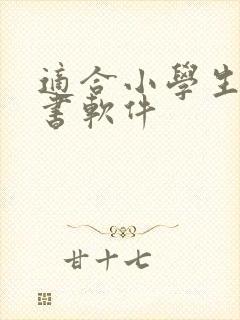 適合小學生
書軟件
甘十七